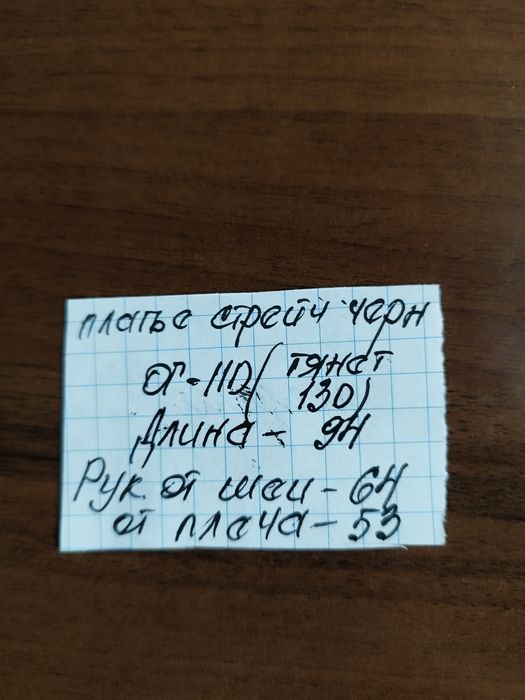 платье стрейч черн
ОГ-110 (тянет
130)
Длина - 94
Рук. от шеи - 64
от плеча - 53